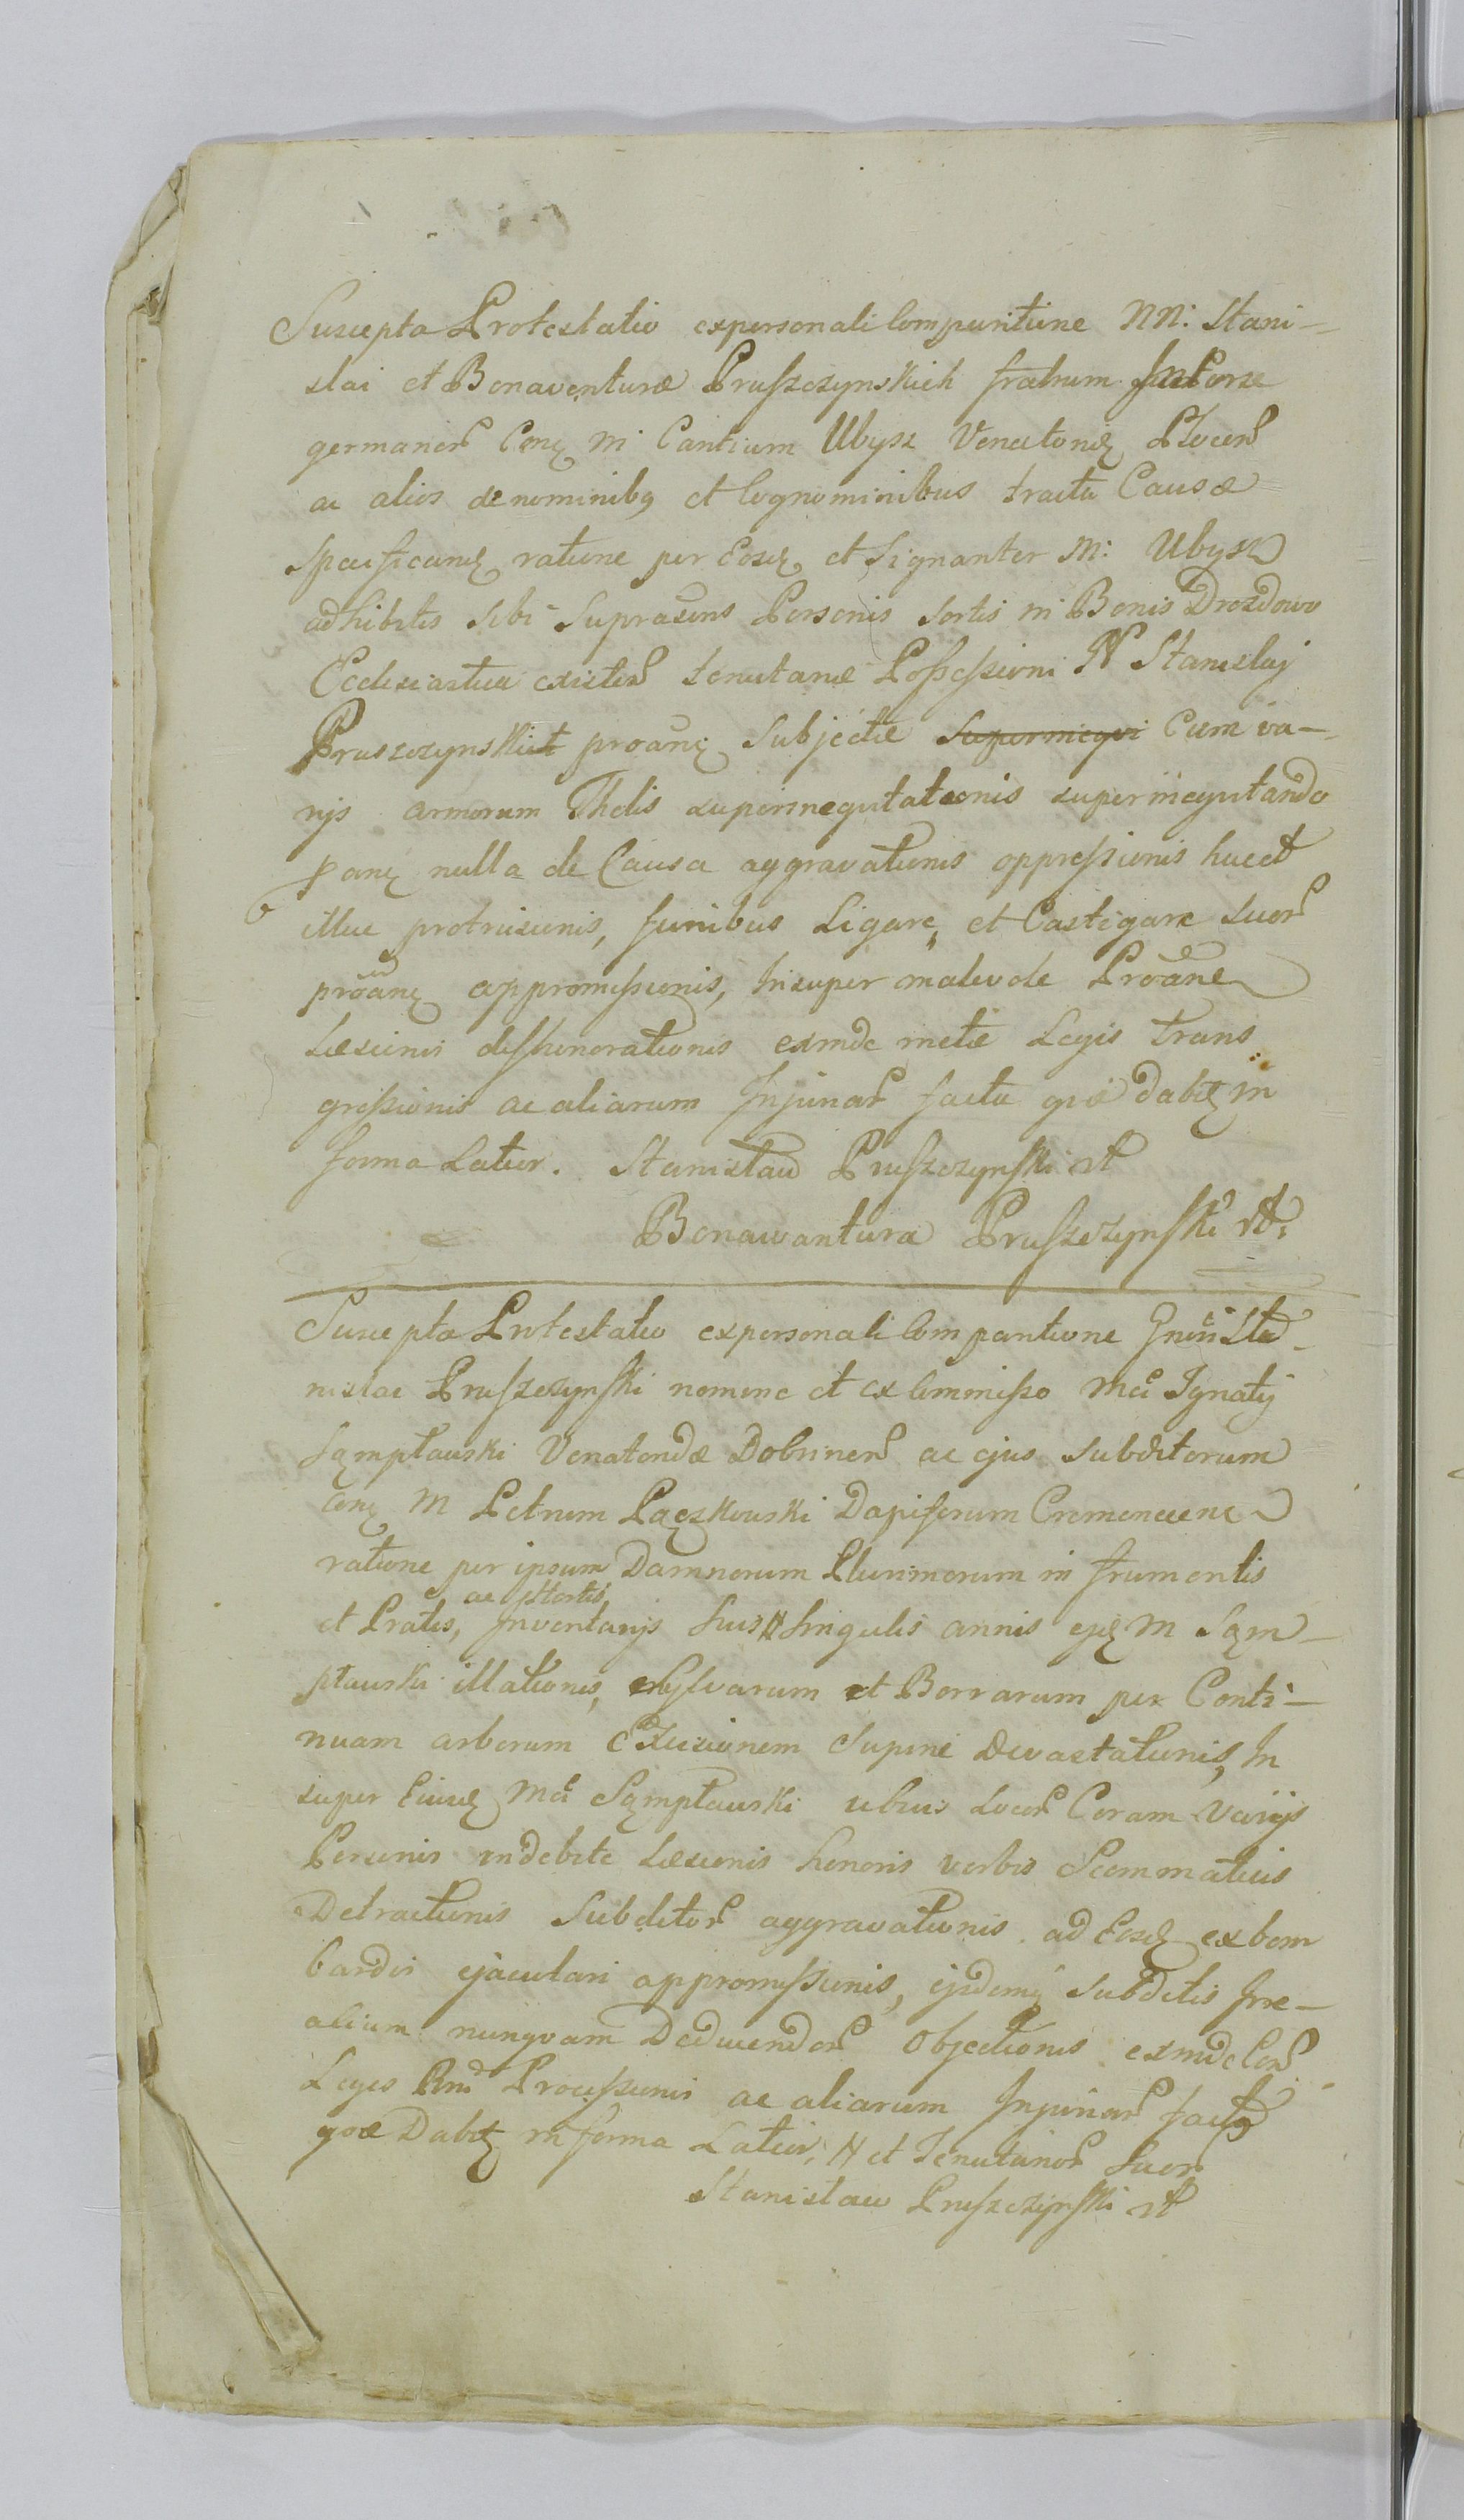 Suscepta Protestatio expersonali Comparitione NN: Stani-
slai et Bonaventuræ Pruſzczynskich fratrum inter se
germanor̃ Conq M: Cantium Ubysz Venatoridę Plocen̄
ac alios de nominibq et Cognominibus tractu Causæ
Specificandę ratione per Eosdę et Signanter M: Ubysz
adhibitis sibi Suprascris Personis Sortis in Bonis Drozdowo
Ecclesiastica existen̄ tenutariæ Poſseſsioni N Stanislaj
Pruszczynski proãnę Subjectæ Supermegvi Cum va-
rijs armorum Thelis supernegvitationis supermegvitando
panę nulla de Causa aggravationis oppreſsionis huc et
illuc protrusionis, funibus Ligare, et Castigare suor̃
proãnę appromiſsionis, Insuper malevole Proãne
Læsionis diſhonorationis exinde metæ Legis trans
greſsionis ac aliarum Injuriar̃ facta qvæ dabitę in
forma Latior. Stanisław Pruſzczynſki
Bonawantura Pruſzczynſki
Suscepta Protestatio expersonali Comparitione Gnisi Sta-
nislai Pruſzczynſki nomine et ex Commiſso Mci Ignatij
Sąmpławski Venatoridæ Dobrinen̄ ac ejus Subditorum
Conę M Petrum Pączkowski Dapiferum Cremenecen
ratione per ipsum Damnorum Plurimorum in frumentis
et Pratis, ac Hortis, Inventarijs Suis N Singulis annis ejdę M Sąm-
pławski illationis, Sylvarum et Borrarum per Conti-
nuam arborum Excisionem Supine Devastationis, In
super Eiusdę Mci Sąmpławski ubivis Locor̃ Coram Varijs
Personis indebite Læsionis honoris verbis Scommaticis
Detractionis Subditor̃ aggravationis ad Eosdę exbom
bardis ejaculari appromiſsionis, ejsdemq Subditis Irre-
alium nunqvam Deducendor̃ Objectionis exinde Con̄
Leges Rni Proceſsionis ac aliarum Injuriar̃ facta
qvæ Dabitę in forma Latior, N et Tenutarior̃ Suor̃
Stanisław Pruſzczynſki